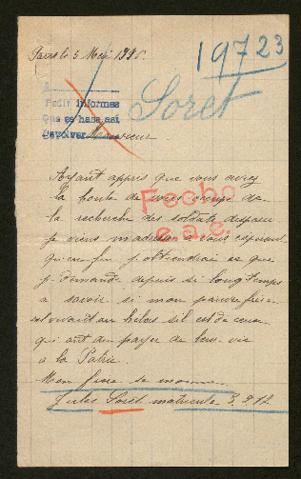 Paris le 3 Mai 1915.
19723
A
Pedir informes
Que se hase así
Devolver
Soret
Monsieur
Ayant appris que vous avez
la bonté de vous occuper de
la recherche des soldats disparu
je viens m'adresser à vous esperant
qu'en fin j'obtiendrai ce que
je demande depuis si longtemps
a savoir si mon pauvre frère
est vivant ou helas s'il est de ceux
qui ont du payer de leur vie
a la Patrie.
Mon frère se nomme
Jules Soret matricule
Fecho
e.a.e.